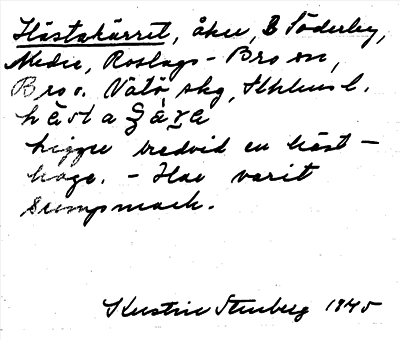 Hästakärret, åker, B Söderby,
Medie, Roslags-Bro sn,
Bro o. Vätö skg, Sthlms l.
hästa
ligger bredvid en häst-
hage. - Har varit
sumpmark.
Kerstin Stenberg 1945